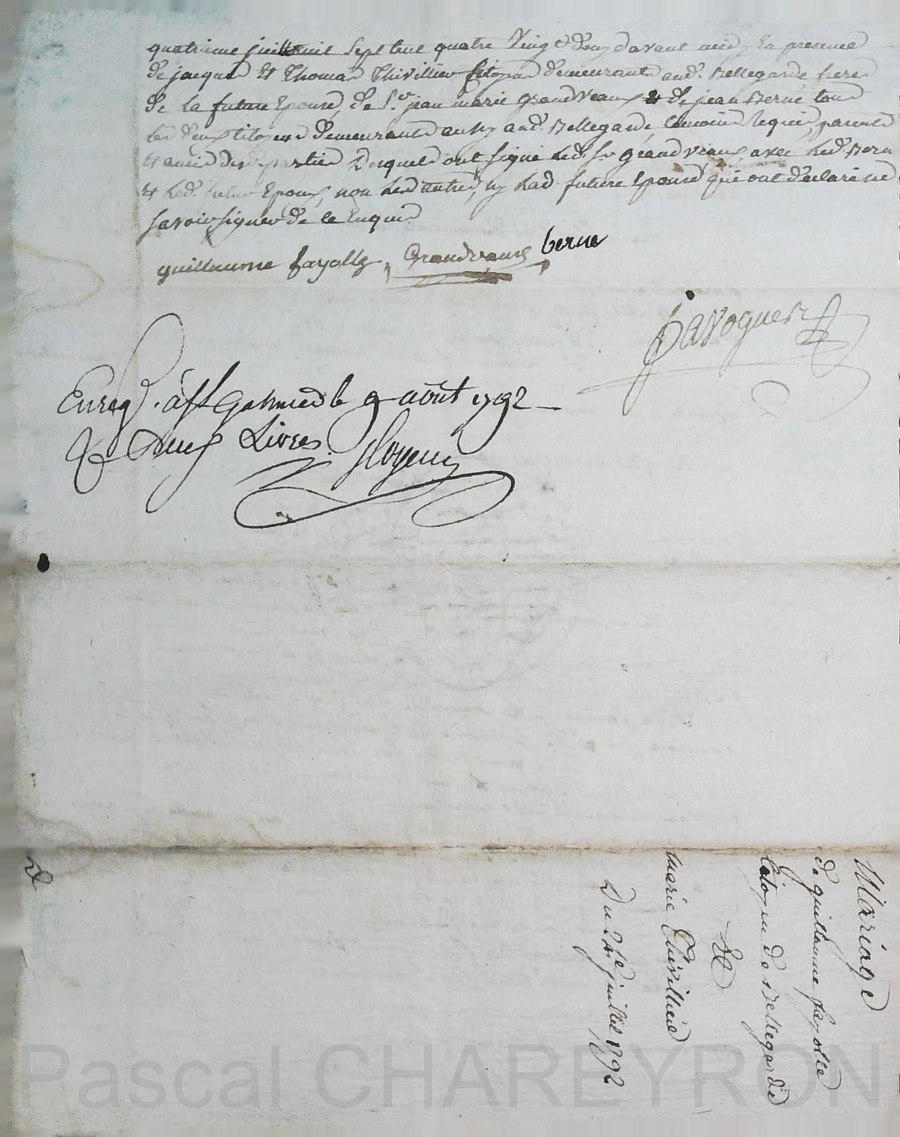 quatrieme juillet mil sept cent quatre vingt douze avant midy En presence
de jacques Et Thomas Thivillier Citoyens demeurant aud. Bellegarde freres
de la future Epouse, de Sr. jean marie grandVeaux & de jean Berne tous
les deux citoyens demeurants aussy aud. Bellegarde temoins requis, parents
& amis des parties Lesquels ont signé Led. Sr. grandveaux avec led. Berne
& Led. futur Epoux, non Les autres, ny Lad. future Epouse qui ont declaré ne
savoir signer de ce Enquis
guillaume fayolle, Grandvaux, berne
Javoguer
Enreg. à St Galmier le 9 août 1792
deux Livres.
Mariage
de guillaume fayolle
Citoyen de Bellegarde
&
marie Thivilliere
Du 24e juillet 1792
Pascal CHAREYRON